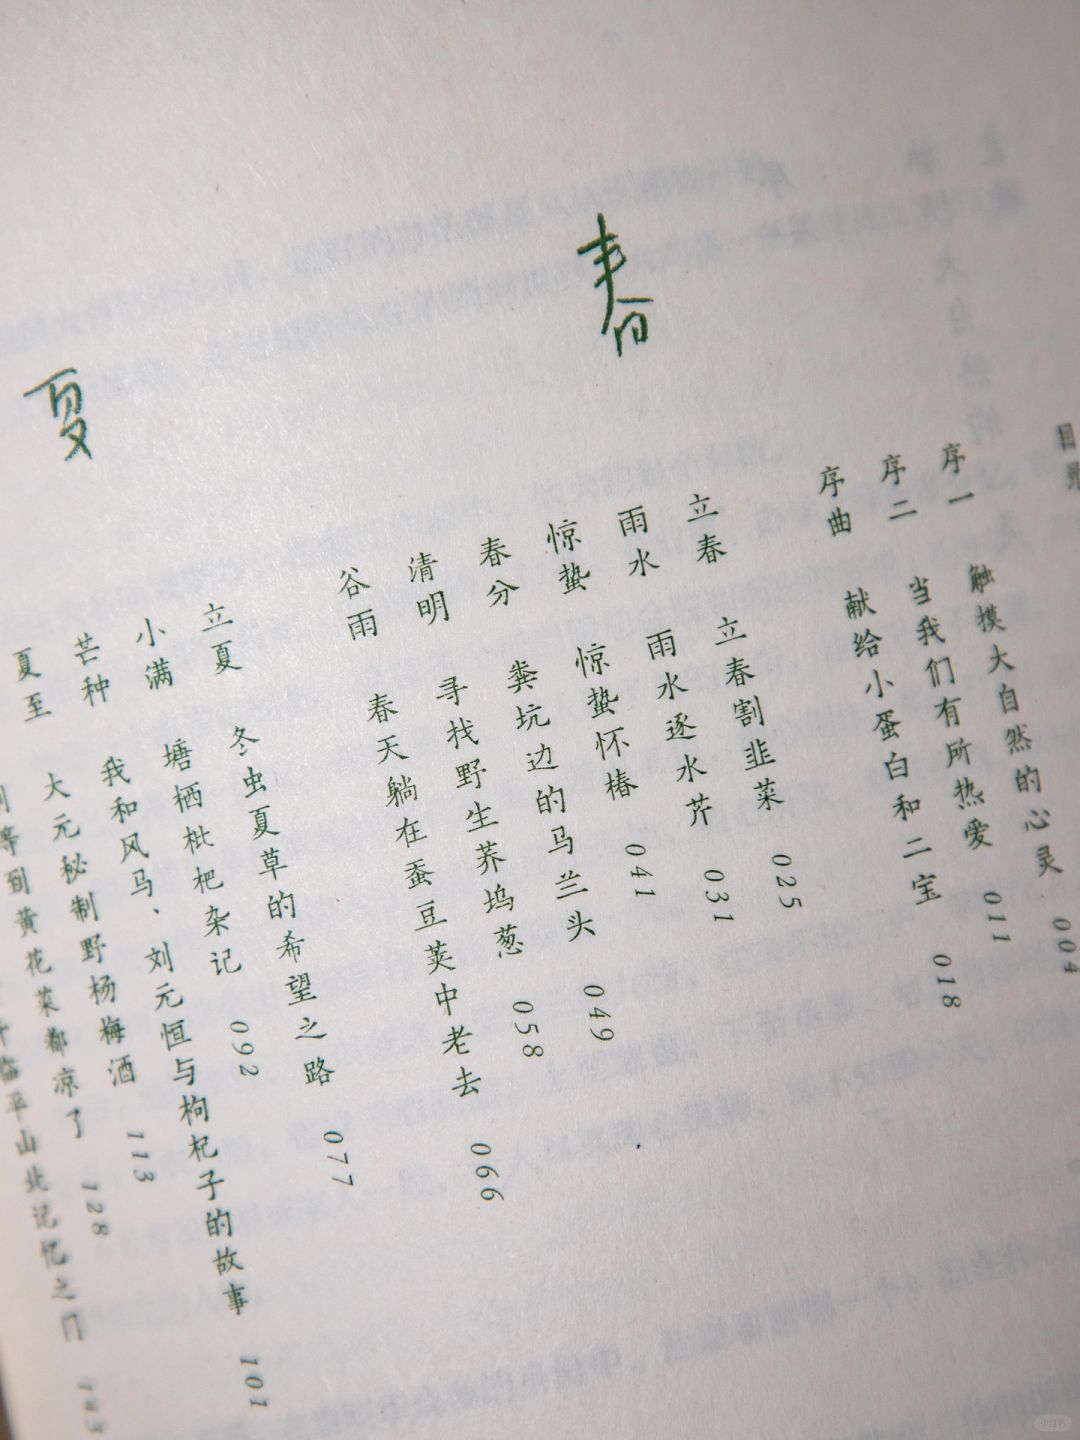 目录
序一 触摸大自然的心灵 004
序二 当我们有所热爱 011
序曲 献给小蛋白和二宝 018
春
立春 立春割韭菜 025
雨水 雨水逐水芹 031
惊蛰 惊蛰怀椿 041
春分 粪坑边的马兰头 049
清明 寻找野生荞坞葱 058
谷雨 春天躺在蚕豆荚中老去 066
夏
立夏 冬虫夏草的希望之路 077
小满 塘栖枇杷杂记 092
芒种 我和风马、刘元恒与枸杞子的故事 101
夏至 大元秘制野杨梅酒 113
等到黄花菜都凉了 128
临平山北记忆之门 143
小红书